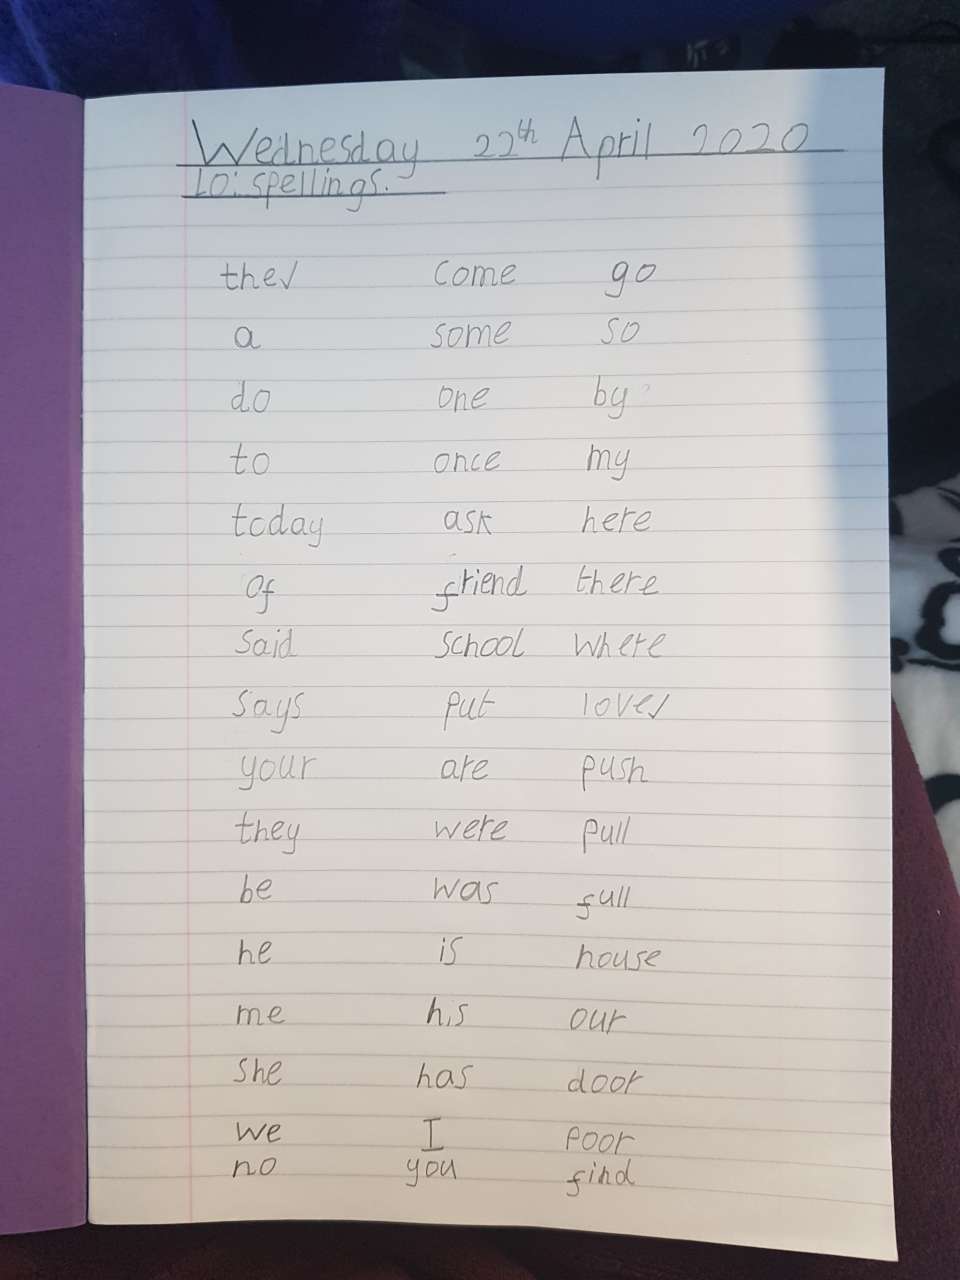 Wednesday 22th April 2020
LO: spellings.
the✓ come go
a some so
do one by
to once my
today ask here
of friend there
said school where
says put love✓
your are push
they were pull
be was full
he is house
me his our
she has door
we I poor
no you find